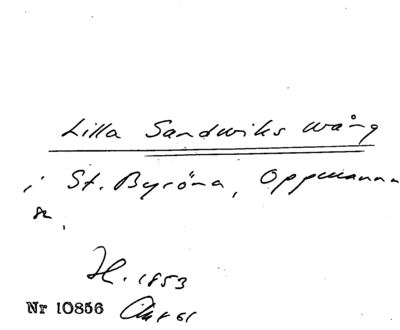 Lilla Sandwiks wång
i St. Byröna, Oppmanna
sn.
H. 1853
Nr 10856